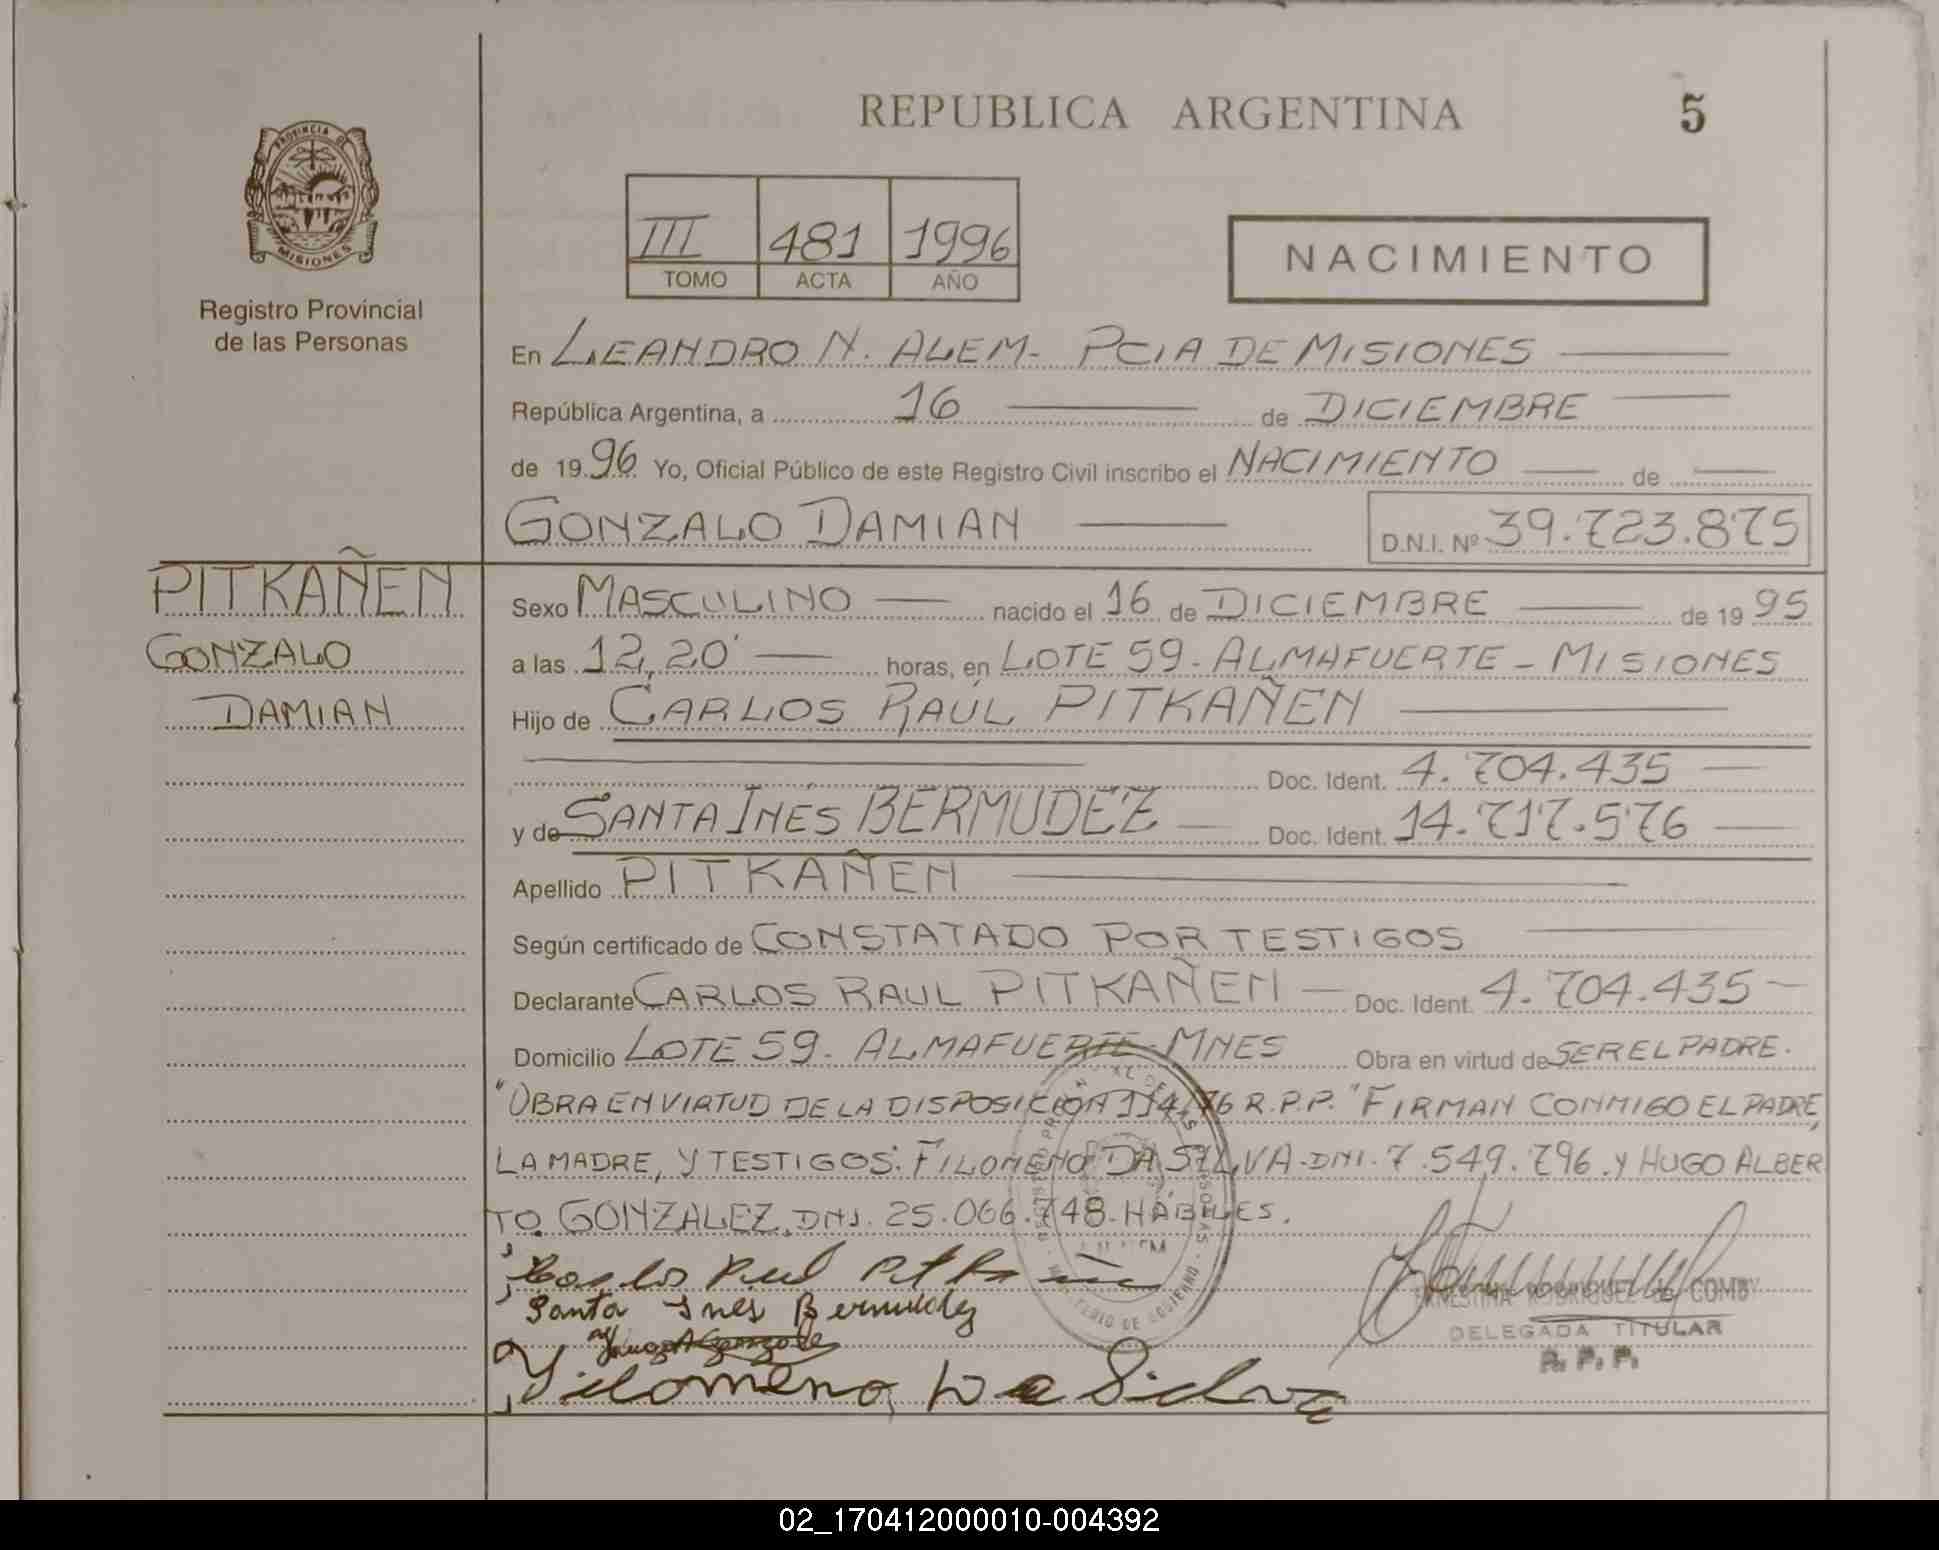 REPUBLICA ARGENTINA
5
PROVINCIA DE
MISIONES
Registro Provincial
de las Personas
III 481 1996
TOMO ACTA AÑO
NACIMIENTO
En LEANDRO N. ALEM- PCIA DE MISIONES
República Argentina, a 16 de DICIEMBRE
de 1996 Yo, Oficial Público de este Registro Civil inscribo el NACIMIENTO de
GONZALO DAMIAN D.N.I. Nº 39.723.875
PITKAÑEN
GONZALO
DAMIAN
Sexo MASCULINO nacido el 16 de DICIEMBRE de 1995
a las 12,20' horas, en LOTE 59. ALMAFUERTE - MISIONES
Hijo de CARLOS RAÚL PITKAÑEN
Doc. Ident. 4.704.435
y de SANTA INÉS BERMUDEZ Doc. Ident. 14.717.576
Apellido PITKAÑEN
Según certificado de CONSTATADO POR TESTIGOS
Declarante CARLOS RAUL PITKAÑEN Doc. Ident. 4.704.435
Domicilio LOTE 59. ALMAFUERTE-MNES Obra en virtud de SER EL PADRE.
"OBRA EN VIRTUD DE LA DISPOSICION 114/76 R.P.P." FIRMAN CONMIGO EL PADRE,
LA MADRE, Y TESTIGOS: FILOMENO DA SILVA-DNI. 7.549.796. Y HUGO ALBER
TO GONZALEZ, DNI. 25.066.748. HÁBILES.
Carlos Raul
Santa Ines Bermudez
Filomeno Da Silva
ERNESTINA RODRIGUEZ de COMBY
DELEGADA TITULAR
R. P. P.
02_170412000010-004392